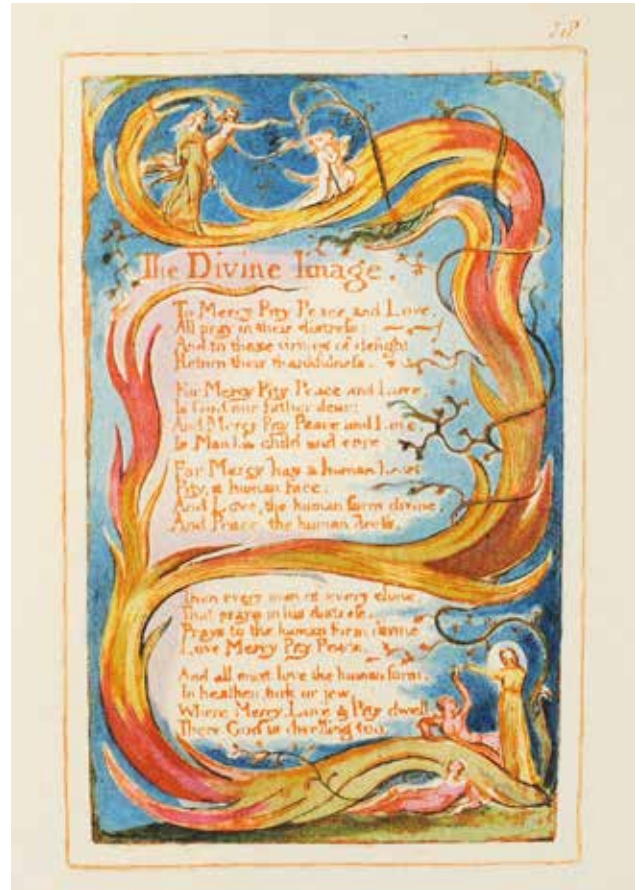 18
The Divine Image.
To Mercy Pity Peace and Love,
All pray in their distress:
And to these virtues of delight
Return their thankfulness.
For Mercy Pity Peace and Love
Is God our father dear:
And Mercy Pity Peace and Love
Is Man his child and care
For Mercy has a human heart
Pity, a human face:
And Love, the human form divine,
And Peace, the human dress.
Then every man of every clime,
That prays in his distress,
Prays to the human form divine
Love Mercy Pity Peace.
And all must love the human form,
In heathen, turk or jew,
Where Mercy, Love & Pity dwell,
There God is dwelling too